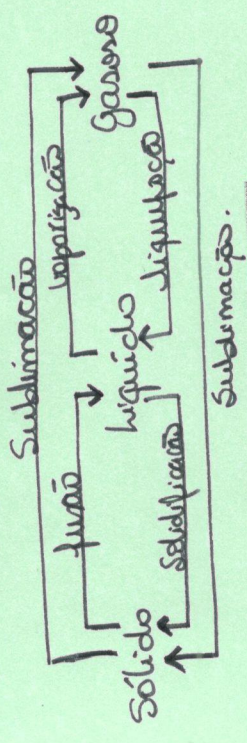 Sublimação
fusão
vaporização
Sólido
Líquido
Gasoso
Solidificação
liquefação
Sublimação.